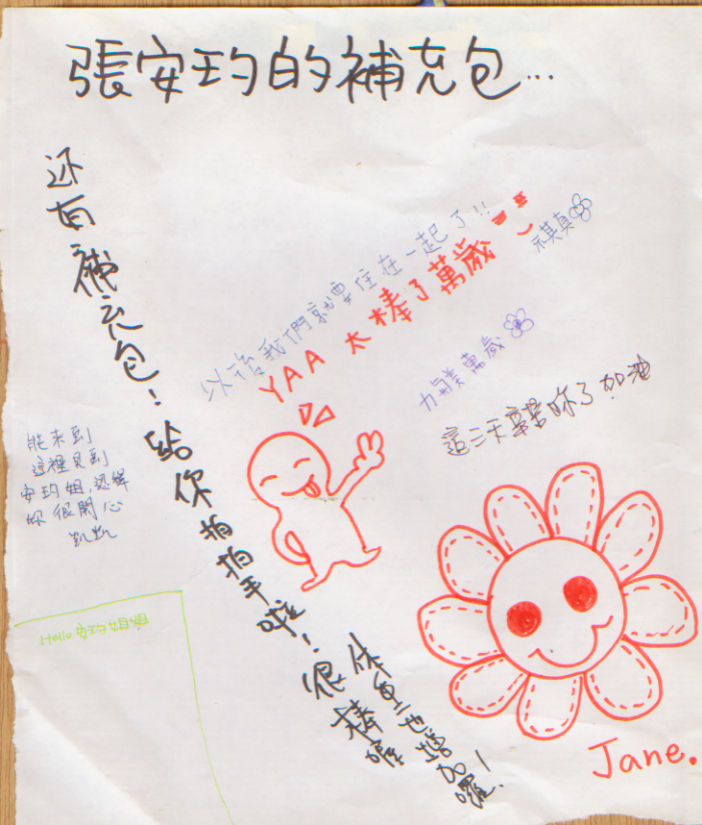 張安玓的補充包...
还有補充包！給你拍拍手啦！很棒喔
以後我們就要住在一起了!!
YAA 太棒了萬歲
萬歲
這三天辛苦妳了 加油
能來到
這裡見到
安玓姐,
妳 很開心
凱凱
Hello 安玓姐姐
Jane.